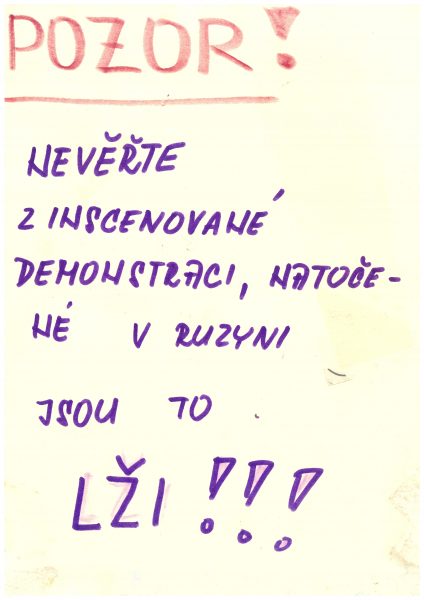 POZOR!
NEVĚŘTE
ZINSCENOVANÉ
DEMONSTRACI, NATOČE-
NÉ V RUZYNI
JSOU TO
LŽI!!!